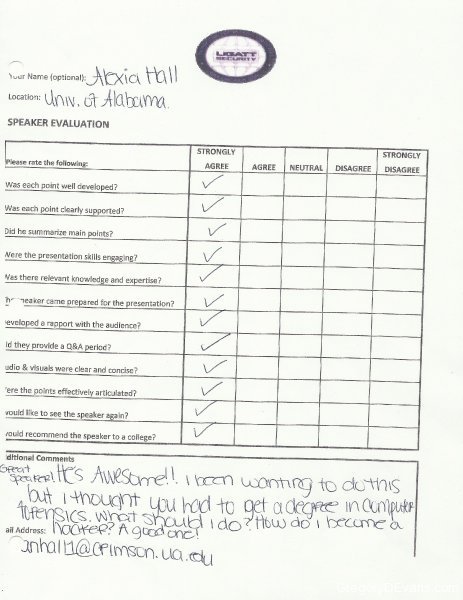 LIGATT
SECURITY
Your Name (optional): Alexia Hall
Location: Univ. of Alabama
SPEAKER EVALUATION
Please rate the following: STRONGLY AGREE AGREE NEUTRAL DISAGREE STRONGLY DISAGREE
Was each point well developed? ✓
Was each point clearly supported? ✓
Did he summarize main points? ✓
Were the presentation skills engaging? ✓
Was there relevant knowledge and expertise? ✓
The speaker came prepared for the presentation? ✓
eveloped a rapport with the audience? ✓
id they provide a Q&A period? ✓
udio & visuals were clear and concise? ✓
ere the points effectively articulated? ✓
vould like to see the speaker again? ✓
vould recommend the speaker to a college? ✓
ditional Comments
Great speaker! He's Awesome!! i been wanting to do this
but i thought you had to get a degree in computer
forensics. What should i do? How do i become a
hacker? A good one!
ail Address:
anhall1@crimson.ua.edu
GregoryDEvans.com